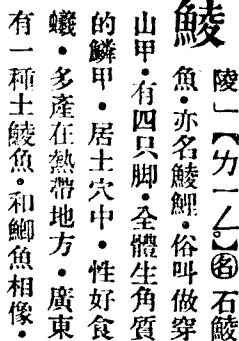 鯪
陵」【ㄌㄧㄥ。】㊔石鯪
魚·亦名鯪鯉·俗叫做穿
山甲·有四只脚·全體生角質
的鱗甲·居土穴中·性好食
蟻·多產在熱帶地方·廣東
有一種土鯪魚·和鯽魚相像·